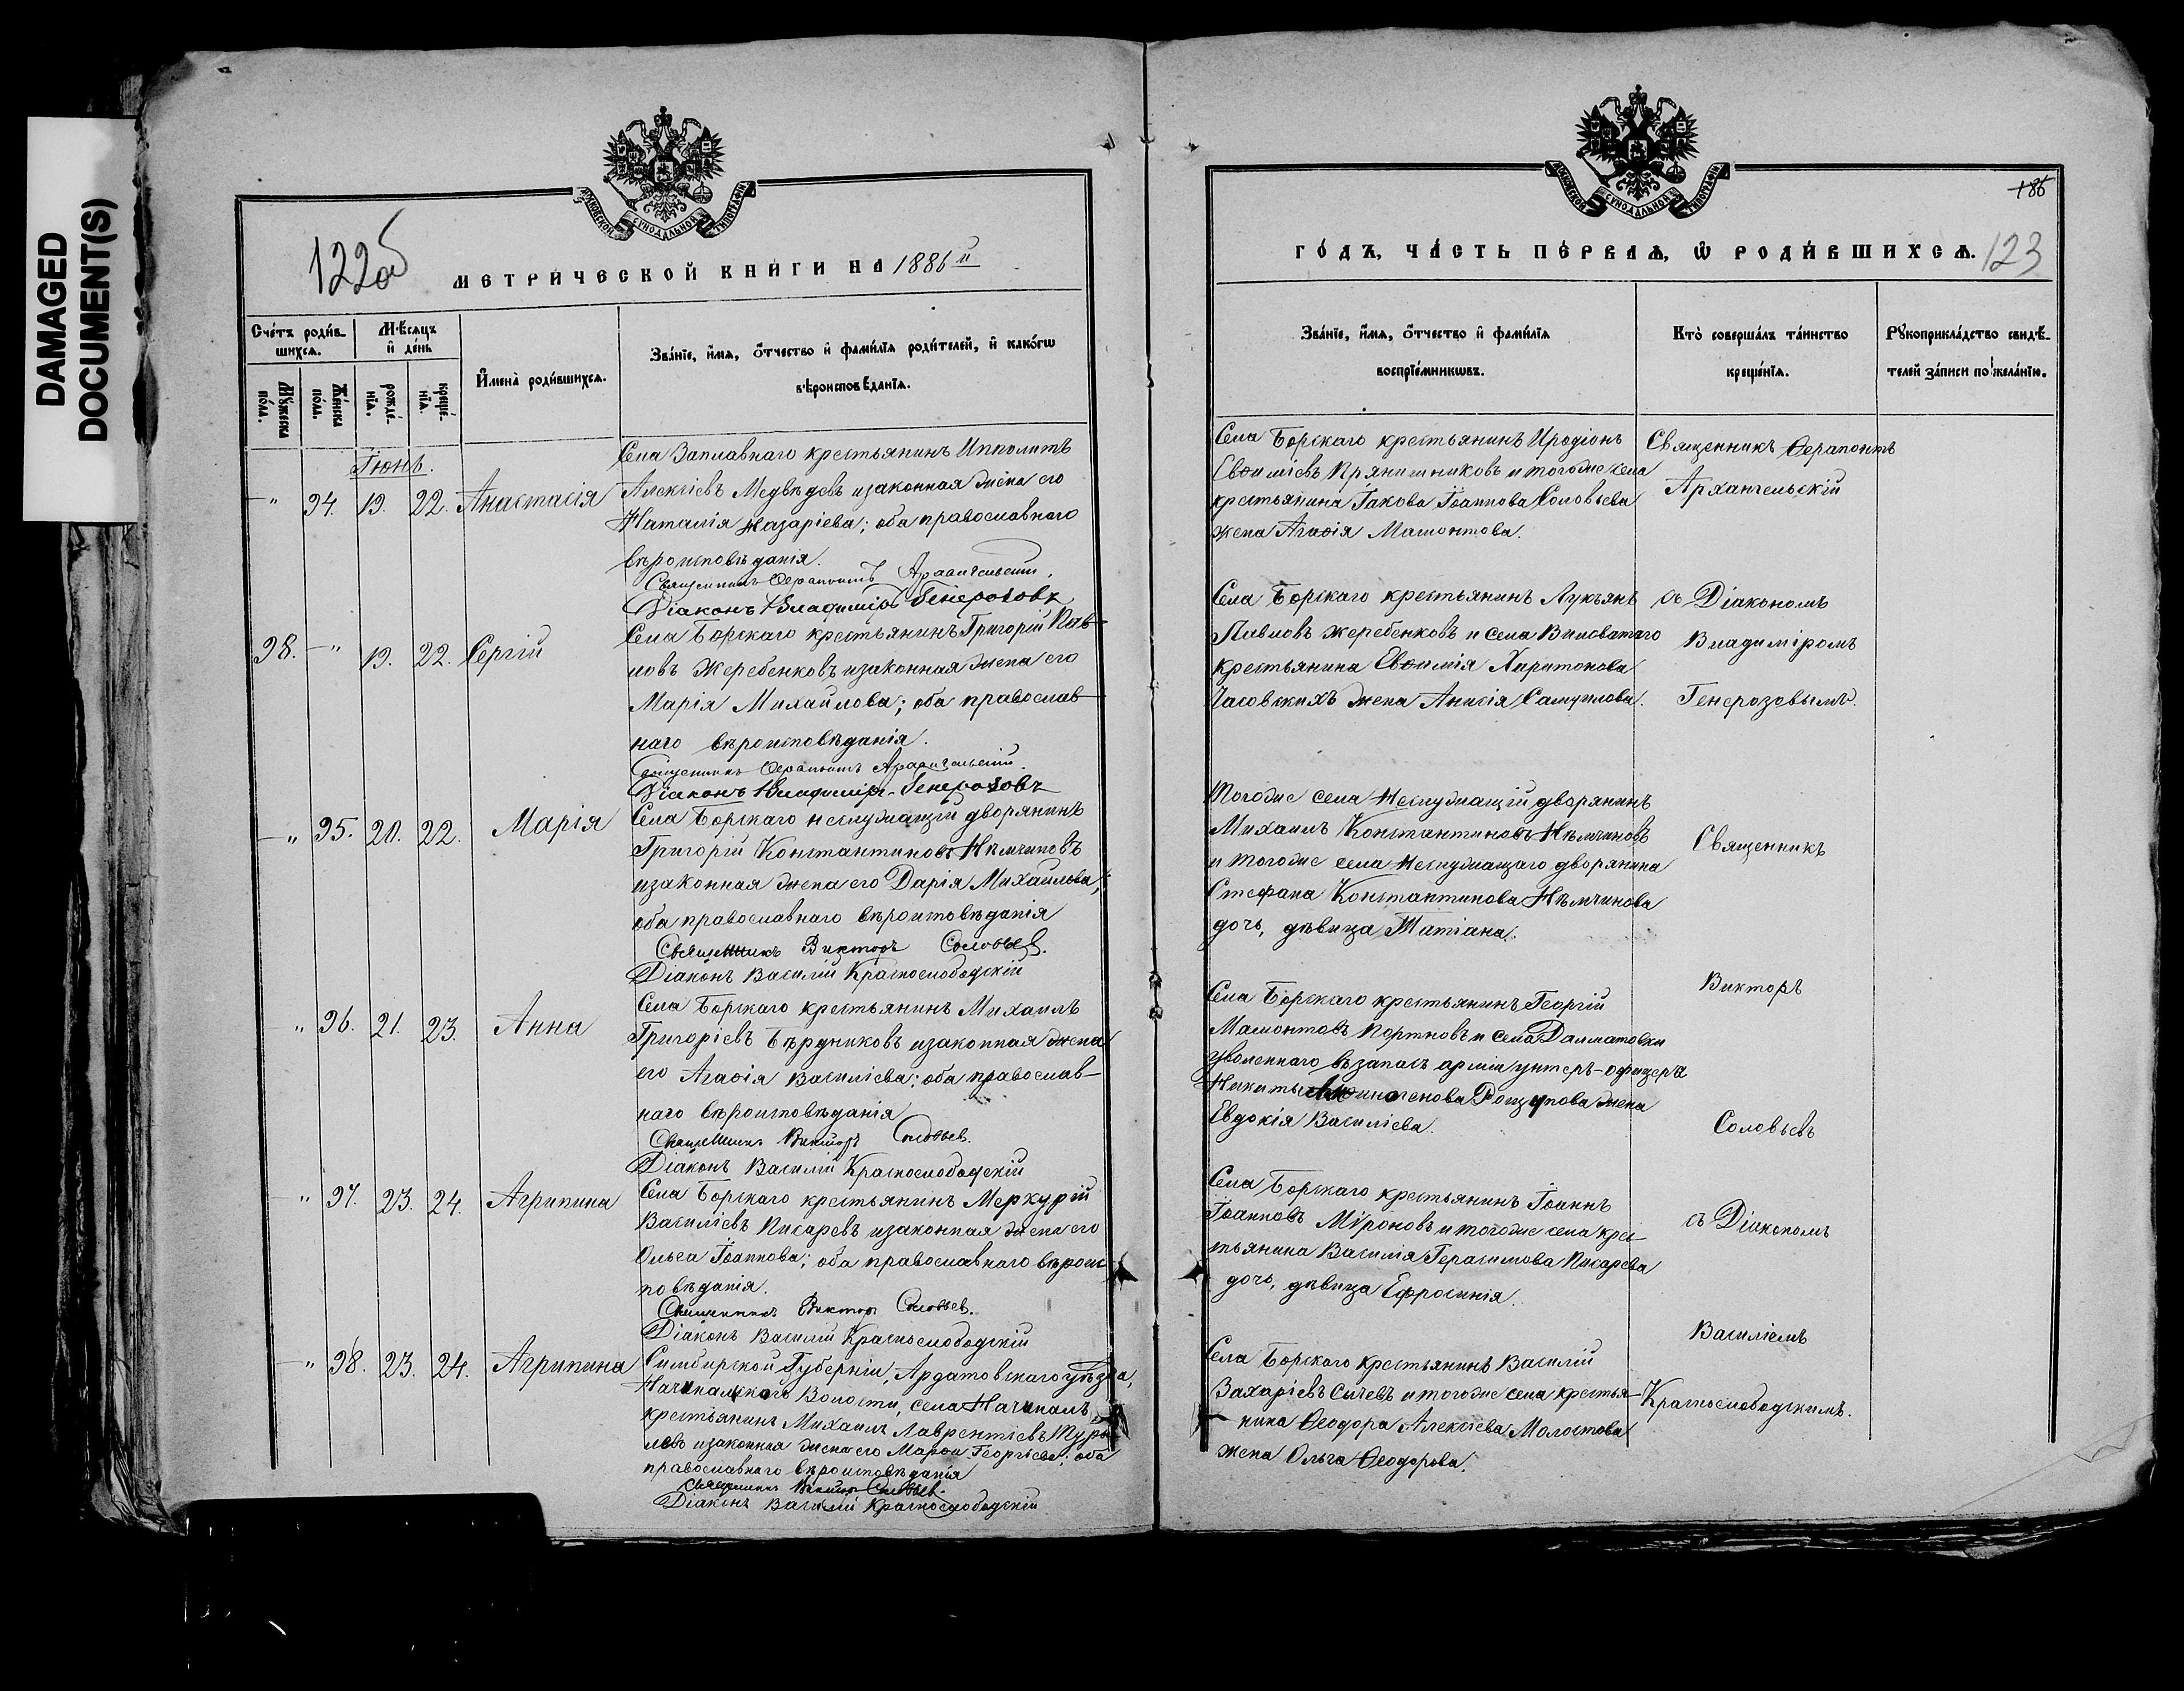 DAMAGED
DOCUMENT(S)
МОСКОВСКОЙ СУНОДАЛЬНОЙ ТИПОГРАФІИ
122об
МЕТРИ́ЧЕСКОЙ КНИ́ГИ НА 1886 й
Сче́тъ роди́в-
шихсѧ.
Мѣ́сѧцъ
и҆ де́нь
И҆мена̀ роди́вшихсѧ.
Зва́нїе, и҆́мѧ, ѻ҆́тчество и҆ фами́лїѧ роди́телей, и҆ како́гѡ
вѣроисповѣ́данїѧ.
Мꙋ́жеска
по́ла.
Же́нска
по́ла.
рожде́-
нїѧ.
креще́-
нїѧ.
Іюнь.
-" 94. 19. 22. Анастасія
Села Заплавнаго крестьянинъ Ипполитъ
Алексіевъ Медвѣдевъ и законная жена его
Наталія Назаріева; оба православнаго
вѣроисповѣданія.
Священникъ Ѳерапонтъ Архангельскій.
Діаконъ Владиміръ Генерозовъ
98. -" 19. 22. Сергій
Села Борскаго крестьянинъ Григорій Пав-
ловъ Жеребенковъ и законная жена его
Марія Михайлова; оба православ-
наго вѣроисповѣданія.
Священникъ Ѳерапонтъ Архангельскій.
Діаконъ Владиміръ Генерозовъ
-" 95. 20. 22. Марія
Села Борскаго неслужащій дворянинъ
Григорій Константиновъ Нѣмчиновъ
и законная жена его Дарія Михайлова;
оба православнаго вѣроисповѣданія
Священникъ Викторъ Соловьев.
Діаконъ Василій Краснослободскій
" 96. 21. 23. Анна
Села Борскаго крестьянинъ Михаилъ
Григоріевъ Бѣрдниковъ и законная жена
его Агаѳія Василіева; оба православ-
наго вѣроисповѣданія
Священникъ Викторъ Соловьев.
Діаконъ Василій Краснослободскій
-" 97. 23. 24. Агрипина
Села Борскаго крестьянинъ Меркурій
Василіевъ Писаревъ и законная жена его
Ольга Іоаннова; оба православнаго вѣроис
повѣданія.
Священникъ Викторъ Соловьев.
Діаконъ Василій Краснослободскій
-" 98. 23. 24. Агрипина
Симбирской Губерніи, Ардатовскаго уѣзда,
Волости, села
крестьянинъ Михаилъ Лаврентіевъ
и законная жена его Марѳа Георгіева; оба
православнаго вѣроисповѣданія
Священникъ Викторъ Соловьев.
Діаконъ Василій Краснослободскій
МОСКОВСКОЙ СУНОДАЛЬНОЙ ТИПОГРАФІИ
186
ГО́ДЪ, ЧА́СТЬ ПЕ́РВАѦ, Ѡ҆ РОДИ́ВШИХСѦ. 123
Зва́нїе, и҆́мѧ, ѻ҆́тчество и҆ фами́лїѧ
воспрїе́мникѡвъ.
Кто̀ соверша́лъ та́инство
креще́нїѧ.
Рꙋкоприкла́дство свидѣ́-
телей за́писи по жела́нїю.
Села Борскаго крестьянинъ Иродіонъ
Евѳиміевъ Прянишниковъ и тогоже села
крестьянина Іакова Іоаннова Соловьева
жена Агаѳія Мамонтова.
Священникъ Ѳерапонтъ
Архангельскій
Села Борскаго крестьянинъ Лукьянъ
Павловъ Жеребенковъ и села Виловатаго
крестьянина Евѳимія Харитонова
Часовскихъ жена Анисія Самуилова.
съ Діакономъ
Владиміромъ
Генерозовымъ.
Тогоже села Неслужащій дворянинъ
Михаилъ Константиновъ Нѣмчиновъ
и тогоже села Неслужащаго дворянина
Стефана Константинова Нѣмчинова
дочь, дѣвица Татіана.
Священникъ
Села Борскаго крестьянинъ Георгій
Мамонтовъ Портновъ и села Далматовки
уволеннаго въ запасъ арміи унтеръ-офицера
Никиты Рощупова жена
Евдокія Василіева.
Викторъ
Соловьевъ
Села Борскаго крестьянинъ Іоаннъ
Іоанновъ Мироновъ и тогоже села крес-
тьянина Василія Герасимова Писарева
дочь, дѣвица Ефросинія.
съ Діакономъ
Василіемъ
Села Борскаго крестьянинъ Василій
Захаріевъ Сычевъ и тогоже села крестья-
нина Ѳеодора Алексіева Молостова
жена Ольга Ѳеодорова.
Краснослободскимъ.